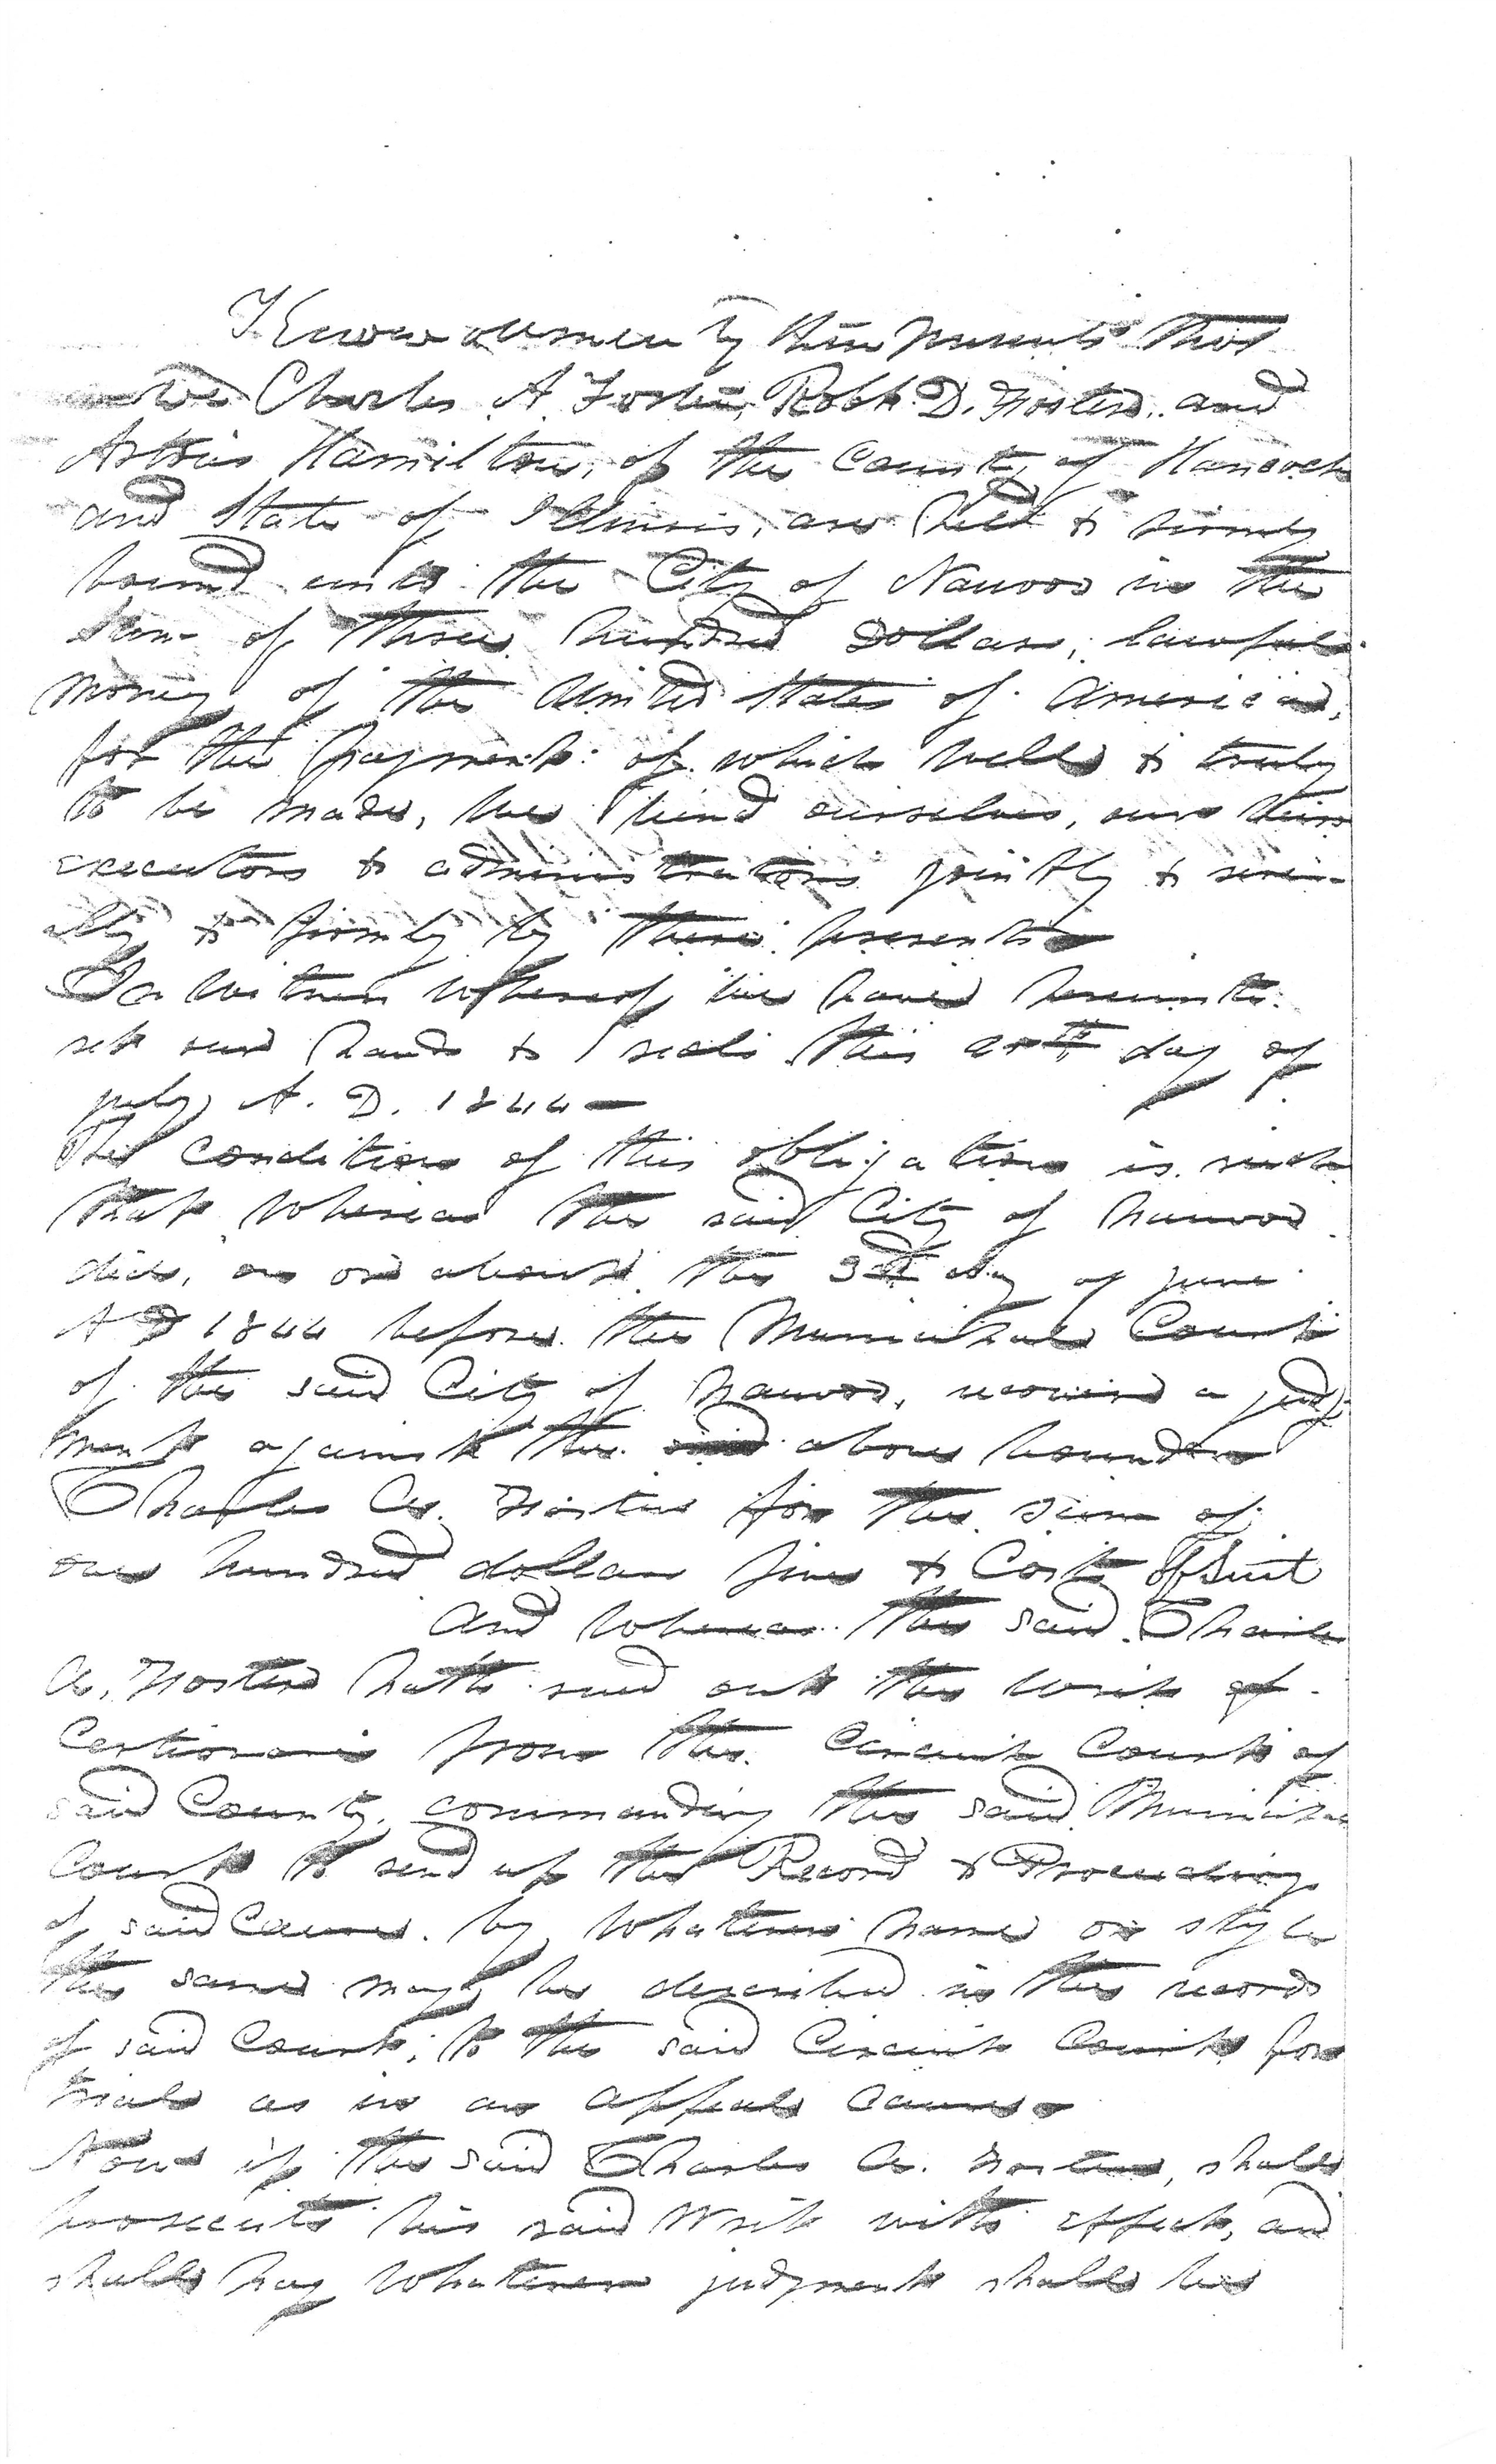 Know all men by these presents that
we Charles A. Foster, Robt. D. Foster, and
Artois Hamilton, of the County of Hancock
and State of Illinois, are held & firmly
bound unto the City of Nauvoo in the
sum of three hundred Dollars, lawful
money of the United States of America,
for the payment of which well & truly
to be made, we bind ourselves, our heirs
executors & administrators jointly & sever-
ally & firmly by these presents
In witness whereof we have hereunto
set our hands & seals this 20th day of
july A. D. 1844 —
The condition of this obligation is such
that whereas the said City of Nauvoo
did, on or about the 3rd day of june
A D 1844 before the Municipal Court
of the said City of Nauvoo, recovered a judg
ment against the said above bounden
Charles A. Foster for the sum of
one hundred dollars fine & Cost of Suit
And Whereas the said Charles
A. Foster hath sued out the Writ of
Certiorari from the Circuit Court of
said County, commanding the said Municipal
Court to send up the Record & Proceedings
of said Cause by whatever name or style
the same may be described in the records
of said Court, to the said Circuit Court for
trial as in an appeal cause
Now if the said Charles A. Foster, shall
prosecute his said Writ with effect, and
shall pay whatever judgment shall be